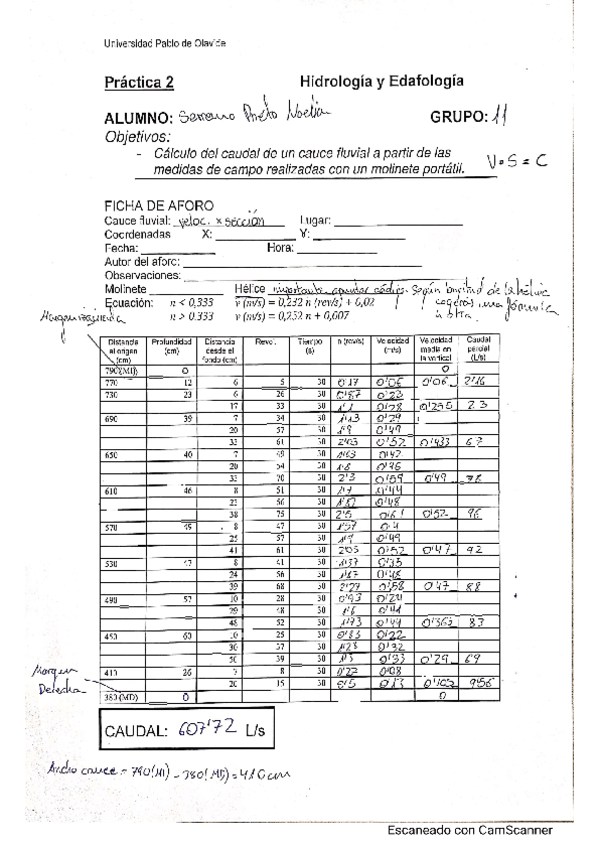 Universidad Pablo de Olavide
Práctica 2 Hidrología y Edafología
ALUMNO: Serrano Prieto Noelia GRUPO: 11
Objetivos:
- Cálculo del caudal de un cauce fluvial a partir de las
medidas de campo realizadas con un molinete portátil.
V·S = C
FICHA DE AFORO
Cauce fluvial: veloc. x sección Lugar:
Coordenadas X: Y:
Fecha: Hora:
Autor del aforo:
Observaciones:
Molinete Hélice importante apuntar código. Según longitud de la hélice
Ecuación: n < 0,333 v (m/s) = 0,232 n (rev/s) + 0,02
cogeros una fórmula
n > 0.333 v (m/s) = 0,252 n + 0,007
u otra.
Margen izquierda
Distancia al origen (cm) Profundidad (cm) Distancia desde el fondo (cm) Revo. Tiempo (s) n (rev/s) Velocidad (m/s) Velocidad media en la vertical Caudal parcial (L/s)
790 (MI) 0 0
770 12 6 5 30 0'17 0'06 0'06 2'16
730 23 6 26 30 0'87 0'22
17 33 30 1'1 0'28 0'255 23
690 39 7 34 30 1'13 0'29
20 57 30 1'9 0'49
33 61 30 2'03 0'52 0'433 67
650 40 7 49 30 1'63 0'42
20 54 30 1'8 0'46
33 70 30 2'3 0'59 0'49 78
610 46 8 51 30 1'7 0'44
23 56 30 0'48
38 75 30 2'5 0'61 0'52 96
570 45 8 47 30 1'57 0'4
25 57 30 1'9 0'49
41 61 30 2'03 0'52 0'47 92
530 47 8 41 30 1'37 0'35
24 56 30 1'87 0'48
39 68 30 2'27 0'58 0'47 88
490 57 10 28 30 0'93 0'24
29 48 30 1'6 0'41
48 52 30 1'73 0'44 0'363 83
450 60 10 25 30 0'83 0'22
30 37 30 1'23 0'32
50 39 30 1'3 0'33 0'29 69
410 26 7 8 30 0'27 0'08
20 15 30 0'5 0'13 0'105 9'56
380 (MD) 0 0
Margen
Derecha
CAUDAL: 607'72 L/s
Ancho cauce = 790(MI) - 380(MD) = 410 cm
Escaneado con CamScanner